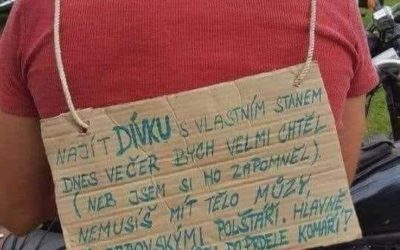 NAJÍT DÍVKU S VLASTNÍM STANEM
DNES VEČER BYCH VELMI CHTĚL
(NEB JSEM SI HO ZAPOMNĚL).
NEMUSÍŠ MÍT TĚLO MŮZY,
POLŠTÁŘI. HLAVNĚ
DO PRDELE KOMÁŘI!